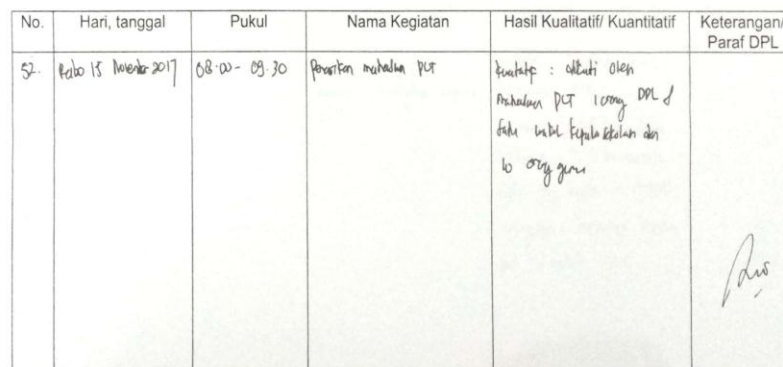 No. Hari, tanggal Pukul Nama Kegiatan Hasil Kualitatif/ Kuantitatif Keterangan/
Paraf DPL
52. Rabo 15 November 2017 08.00 - 09.30 Penarikan mahasiswa PLT Kualitatif : diikuti oleh
Mahasiswa PLT 1 orang DPL &
satu wakil kepala sekolah dan
10 orang guru